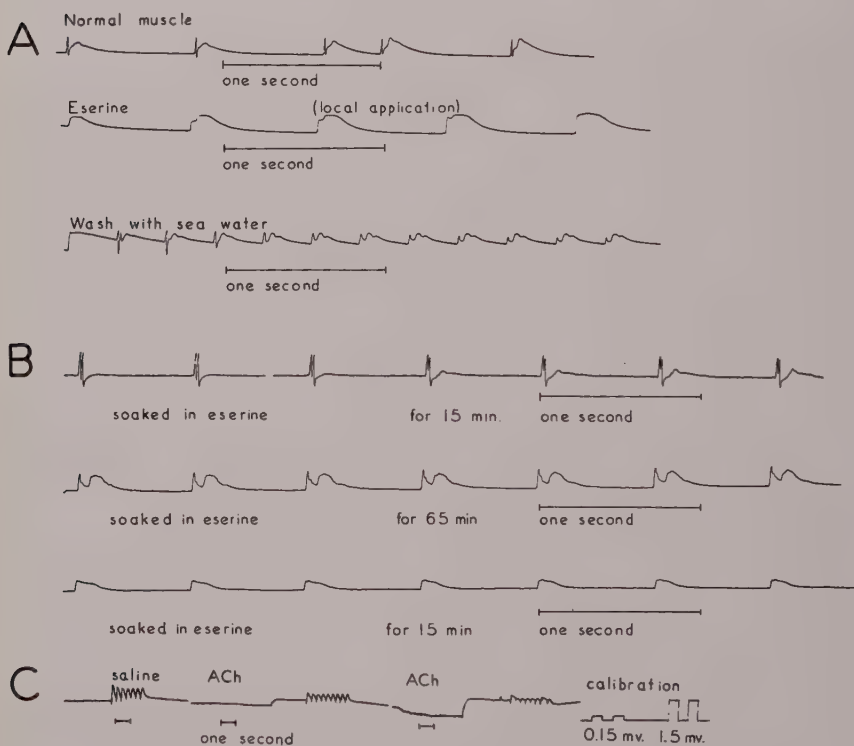 A
Normal muscle
one second
Eserine (local application)
one second
Wash with sea water
one second
B
soaked in eserine for 15 min. one second
soaked in eserine for 65 min one second
soaked in eserine for 15 min one second
C
saline ACh ACh calibration
one second 0.15 mv. 1.5 mv.